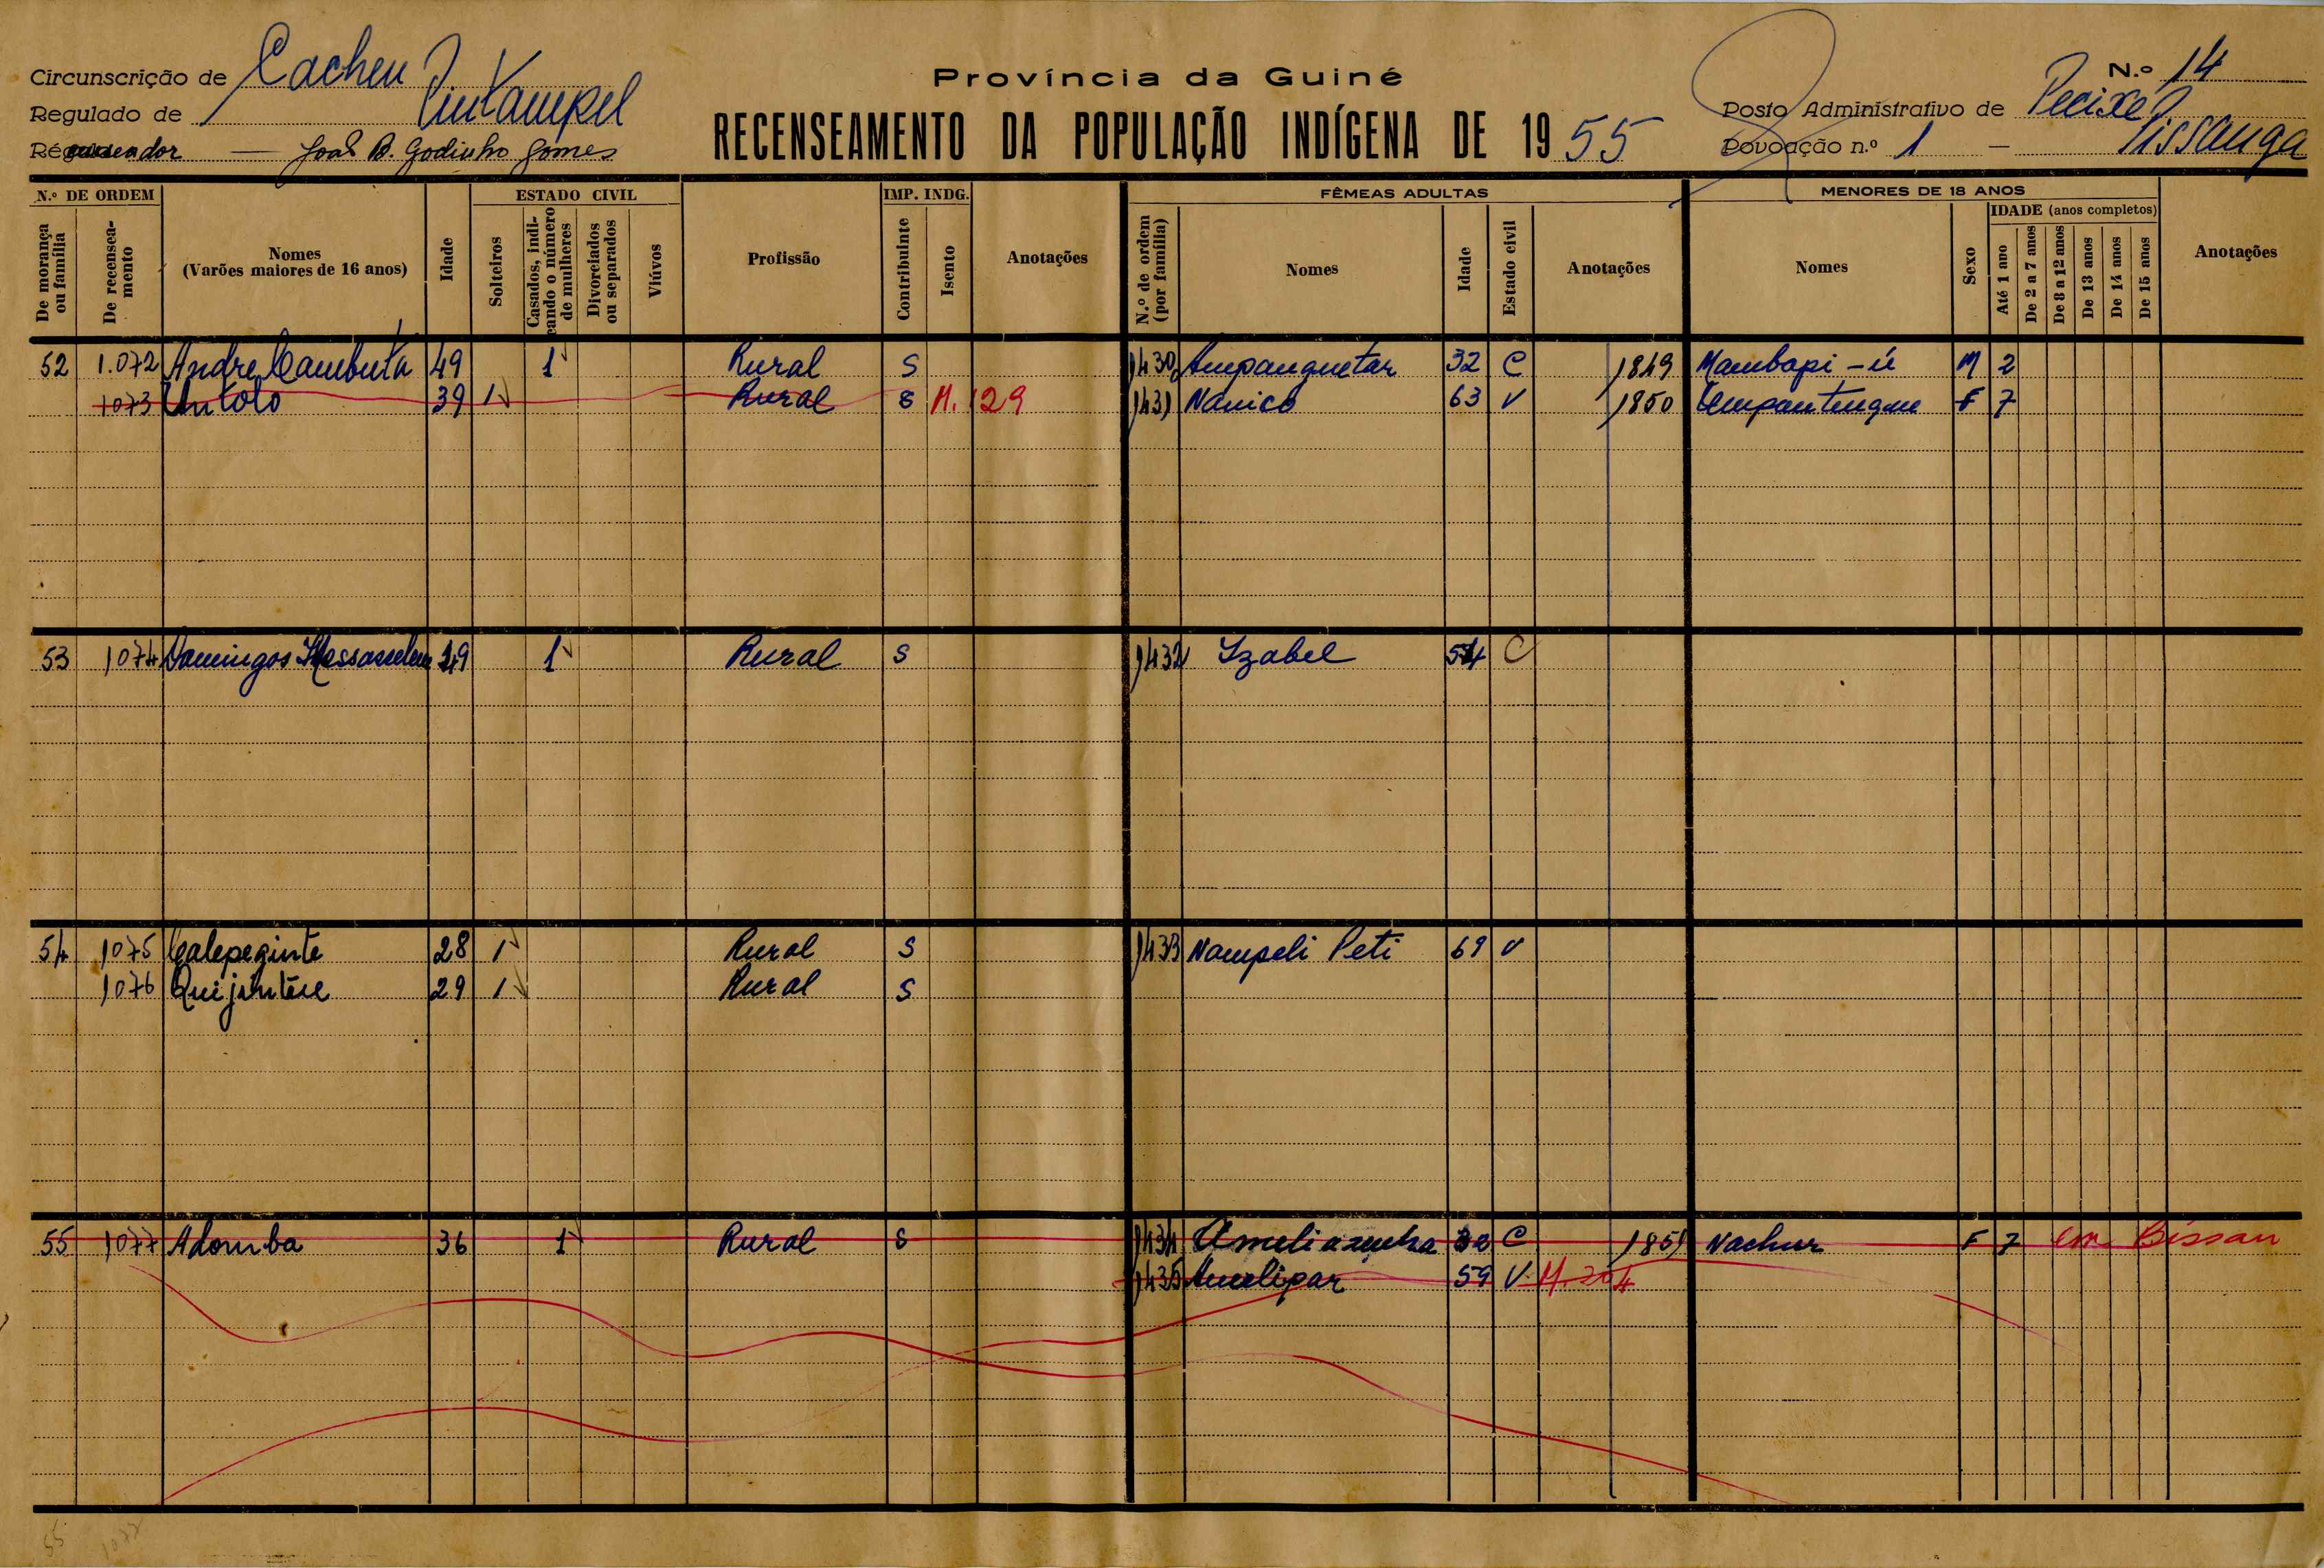 Circunscrição de Cacheu
Regulado de Pintampil
Recenseador — João B. Godinho Gomes
Província da Guiné
RECENSEAMENTO DA POPULAÇÃO INDÍGENA DE 1955
N.º 14
Posto Administrativo de Pecixe
Povoação n.º 1 –
N.º DE ORDEM
De morança ou família
De recenseamento
Nomes
(Varões maiores de 16 anos)
Idade
ESTADO CIVIL
Solteiros
Casados, indicando o número de mulheres
Divorciados ou separados
Viúvos
Profissão
IMP. INDG.
Contribuinte
Isento
Anotações
FÊMEAS ADULTAS
N.º de ordem (por família)
Nomes
Idade
Estado civil
Anotações
MENORES DE 18 ANOS
Nomes
Sexo
IDADE (anos completos)
Até 1 ano
De 2 a 7 anos
De 8 a 12 anos
De 13 anos
De 14 anos
De 15 anos
Anotações
52 1.072 Andre Cambuta 49 1 Rural S 1430 Ampanguetar 32 C 1849 Mambapi-ú M 2
1073 Untolo 39 1 Rural S M. 129 1431 Nanico 63 V 1850 F 7
53 1074 Domingos 1 Rural S 1432 Izabel C
54 1075 Calepeginte 28 1 Rural S 1433 Nampeli Peti 69 V
1076 29 1 Rural S
55 1077 Adomba 36 1 Rural S 1434 C 1851 Nachur F 7 em Bissau
1435 Amelipar 59 V M. 204
55 1077